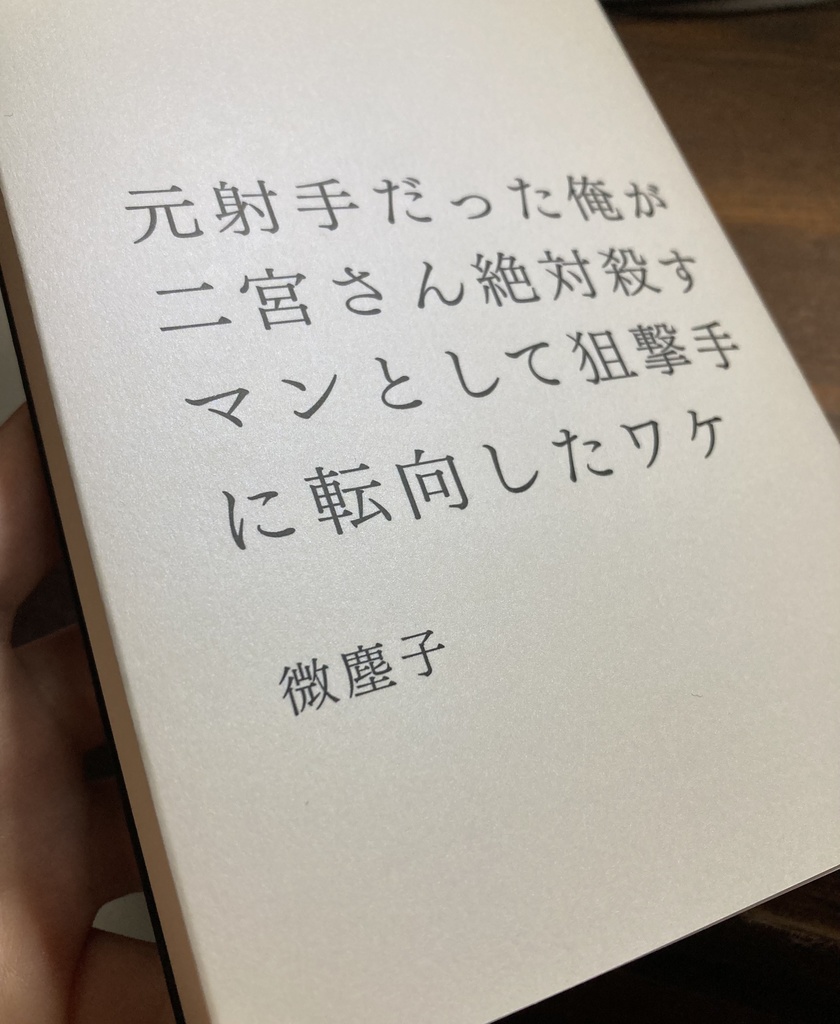 元射手だった俺が
二宮さん絶対殺す
マンとして狙撃手
に転向したワケ
微塵子